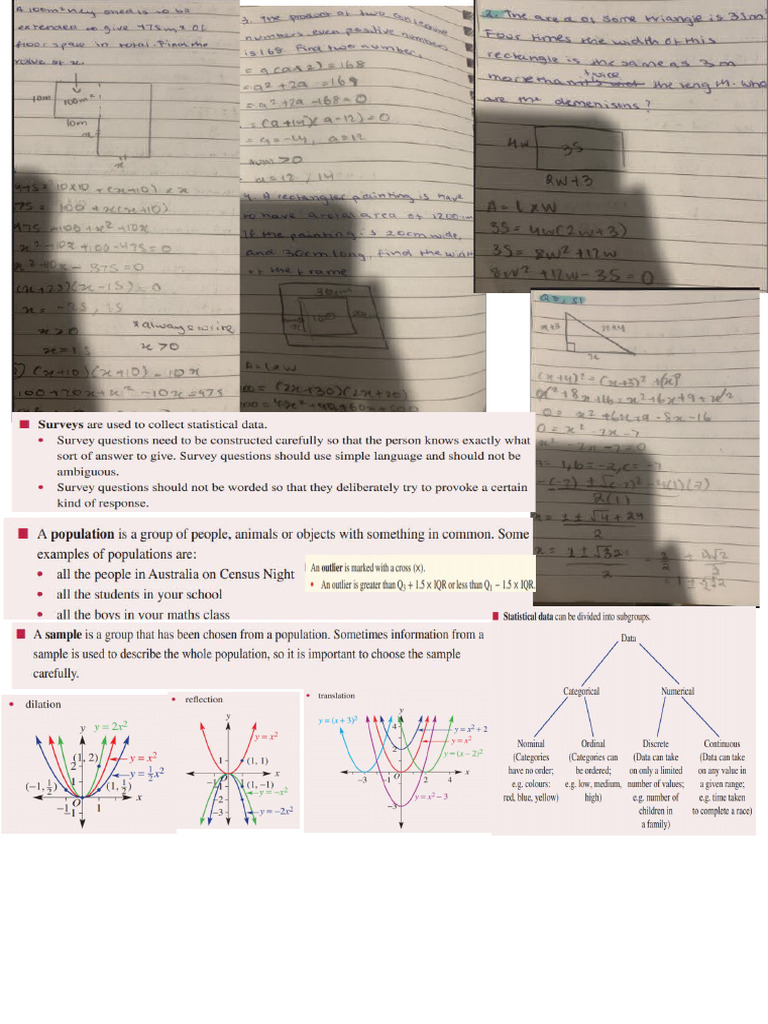 A 100m² hay oned is to be
extended to give 475m² of
floor space in total. Find the
value of x.
10m
100m²
10m
x
x
475 = 10x10 + (x+10) x x
75 = 100 + x(x+10)
475 = 100 + x² + 10x
x² + 10x + 100 - 475 = 0
x² + 10x - 375 = 0
(x+25)(x-15) = 0
x = -25, 15
x>0
x=15
*always write
x>0
(x+10)(x+10) - 10x
100+20x+x² - 10x = 475
3. The product of two consecutive
numbers even positive numbers
is 168. Find two numbers.
= a(a+2) = 168
= a² + 2a = 168
= a² + 2a - 168 = 0
= (a+14)(a-12) = 0
= a = -14, a=12
num >0
a = 12, 14
4. A rectangler painting is have
to have a total area of 1200cm
If the painting is 20cm wide,
and 30cm long, find the width
of the frame
30cm
A = L x W
1200 = (2x+30)(2x+20)
2. The area of some triangle is 35m
Four times the width of this
rectangle is the same as 3m
more than twice the length. what
are the demenisins?
4w
35
2w+3
A = L x W
35 = 4w(2w+3)
35 = 8w² + 12w
8w² + 12w - 35 = 0
x+3
x+4
x
(x+4)² = (x+3)² + (x)²
x² + 8x + 16 = x² + 6x + 9 + x²
0 = x² + 6x + 9 - 8x - 16
0 = x² - 2x - 7
x² - 2x - 7 = 0
a = 1, b = -2, c = -7
2(1)
2
2
■ Surveys are used to collect statistical data.
• Survey questions need to be constructed carefully so that the person knows exactly what
sort of answer to give. Survey questions should use simple language and should not be
ambiguous.
• Survey questions should not be worded so that they deliberately try to provoke a certain
kind of response.
■ A population is a group of people, animals or objects with something in common. Some
examples of populations are:
• all the people in Australia on Census Night
• all the students in your school
• all the boys in your maths class
An outlier is marked with a cross (×).
• An outlier is greater than Q₃ + 1.5 × IQR or less than Q₁ − 1.5 × IQR.
■ A sample is a group that has been chosen from a population. Sometimes information from a
sample is used to describe the whole population, so it is important to choose the sample
carefully.
■ Statistical data can be divided into subgroups.
Data
Categorical Numerical
Nominal Ordinal Discrete Continuous
(Categories (Categories can (Data can take (Data can take
have no order; be ordered; on only a limited on any value in
e.g. colours: e.g. low, medium, number of values; a given range;
red, blue, yellow) high) e.g. number of e.g. time taken
children in to complete a race)
a family)
• dilation
y
y = 2x²
(1, 2)
y = x²
y = ½x²
(−1, ½)
(1, ½)
2
1
O
x
−1
1
−1
• reflection
y
y = x²
1
(1, 1)
x
O
−1
1
(1, −1)
−2
y = −x²
−3
y = −2x²
• translation
y
y = (x + 3)²
4
y = x² + 2
y = x²
2
y = (x − 2)²
x
−3
−1
O
2
4
y = x² − 3
−3